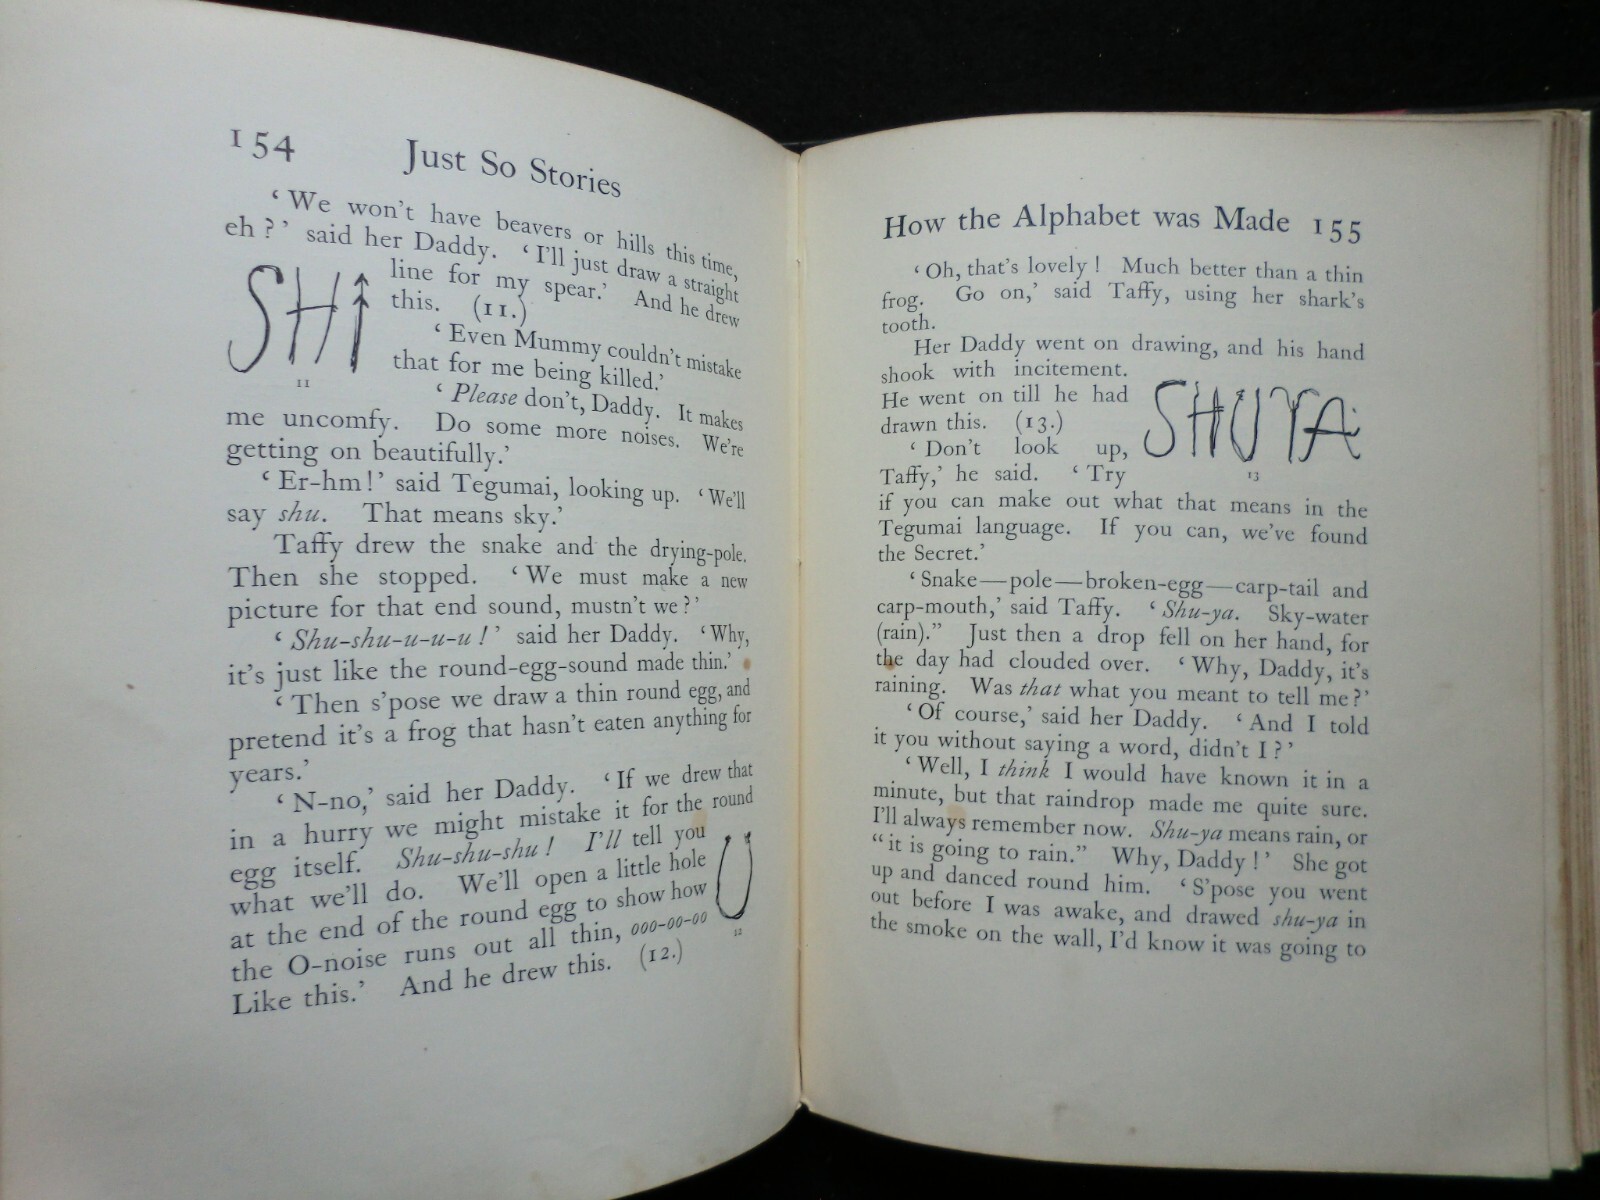 154 Just So Stories
‘We won't have beavers or hills this time,
eh?’ said her Daddy. ‘I'll just draw a straight
line for my spear.’ And he drew
this. (11.)
SHI
11
‘Even Mummy couldn't mistake
that for me being killed.’
‘Please don't, Daddy. It makes
me uncomfy. Do some more noises. We're
getting on beautifully.’
‘Er-hm!’ said Tegumai, looking up. ‘We'll
say shu. That means sky.’
Taffy drew the snake and the drying-pole.
Then she stopped. ‘We must make a new
picture for that end sound, mustn't we?’
‘Shu-shu-u-u-u!’ said her Daddy. ‘Why,
it's just like the round-egg-sound made thin.’
‘Then s'pose we draw a thin round egg, and
pretend it's a frog that hasn't eaten anything for
years.’
‘N-no,’ said her Daddy. ‘If we drew that
in a hurry we might mistake it for the round
egg itself. Shu-shu-shu! I'll tell you
what we'll do. We'll open a little hole
at the end of the round egg to show how
the O-noise runs out all thin, ooo-oo-oo
Like this.’ And he drew this. (12.)
U
12
How the Alphabet was Made 155
‘Oh, that's lovely! Much better than a thin
frog. Go on,’ said Taffy, using her shark's
tooth.
Her Daddy went on drawing, and his hand
shook with incitement.
He went on till he had
drawn this. (13.)
SHUYA
13
‘Don't look up,
Taffy,’ he said. ‘Try
if you can make out what that means in the
Tegumai language. If you can, we've found
the Secret.’
‘Snake—pole—broken-egg—carp-tail and
carp-mouth,’ said Taffy. ‘Shu-ya. Sky-water
(rain).” Just then a drop fell on her hand, for
the day had clouded over. ‘Why, Daddy, it's
raining. Was that what you meant to tell me?’
‘Of course,’ said her Daddy. ‘And I told
it you without saying a word, didn't I?’
‘Well, I think I would have known it in a
minute, but that raindrop made me quite sure.
I'll always remember now. Shu-ya means rain, or
“it is going to rain.” Why, Daddy!’ She got
up and danced round him. ‘S'pose you went
out before I was awake, and drawed shu-ya in
the smoke on the wall, I'd know it was going to